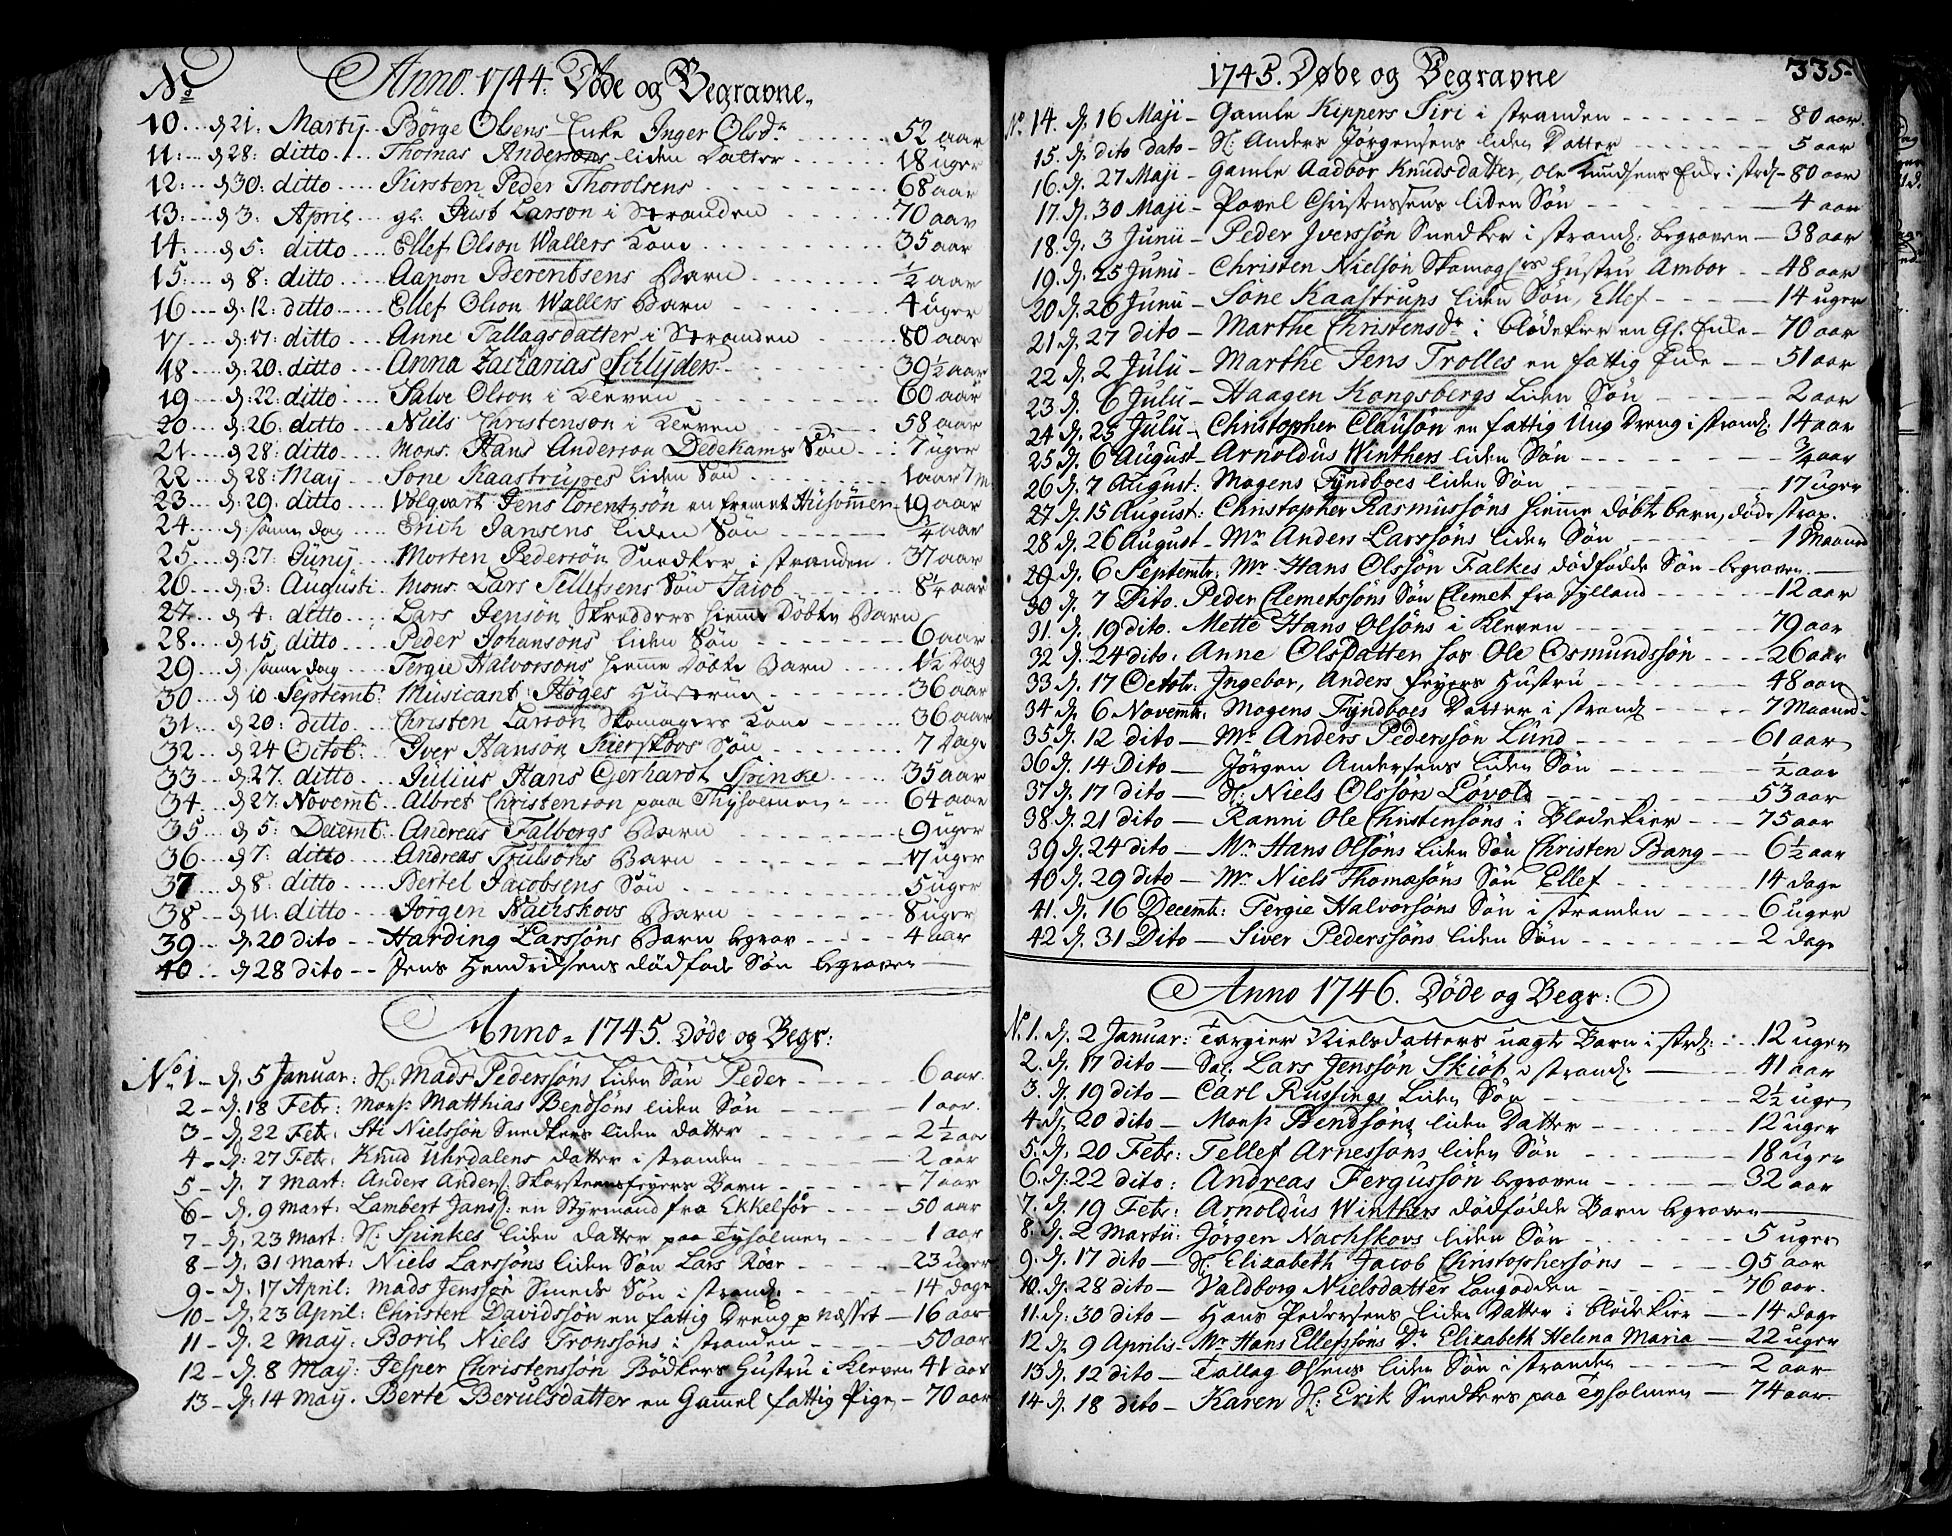 No Anno. 1744. Døde og Begravne.
10... d 21: Martij Børge Olsens Enke Inger Olsdr 52 aar
11:... d 28: ditto Thomas Andersons liden Datter 18 uger
12:... d 30: ditto Kirsten Peder Thorolsens 68 aar
13:... d 3: April gl: Just Larson i Stranden 70 aar
14: d 5: ditto Ellef Olson Wallers Kone 35 aar
15: d 8: ditto Aanon Berentsens Barn ½ aar
16 d: 12: ditto Ellef Olson Wallers Barn 4 uger
17 d: 17: ditto Anne Tallagsdatter i Stranden 80 aar
18 d: 20: ditto Anna Zacharias Schlyders 39½ aar
19 d: 22: ditto Salve Olson i Kleven 60 aar
20 d: 26: ditto Niels Christenson i Kleven 58 aar
21 d 28: ditto Mons. Hans Anderson Dedekams Søn 7 uger
22 d 28: May Sone Kaastrupes liden Søn 1 aar 7 m
23 d: 29: ditto Volqvart Jens Lorentzsön en fremet Huusmen 19 aar
24 d: samme dag Erich Jansens liden Søn ¼ aar
25 d: 27: Junij Morten Pedersøn Snedker i stranden 37 aar
26 d: 3: Augusti Mons. Lars Tellefsens Søn Jacob 8¼ aar
27 d 4: ditto Lars Jenson Skredders hiemme Døbte Barn
28 d 15 ditto Peder Johansöns liden Søn 6 aar
29 d: samme dag Tergie Halvorsons hieme Døbte Barn 1½ Dag
30 d 10 Septemb: Musicant Høges Hustrue 36 aar
31: d 20: ditto Christen Larson Skomagers Kone 36 aar
32 d 24 Octob: Iver Hanson Kierskovs Søn 7 Dage
33 d: 27. ditto Julius Hans Gerhardt Spinke 35 aar
34 d 27. Novemb Albret Christenson paa Thyholmen 64 aar
35 d 5: Decemb Andreas Falborgs Barn 9 uger
36 d 7: ditto Andreas Trulsons Barn 17 uger
37 d 8: ditto Bertel Jacobsens Søn 5 uger
38 d 11: ditto Jörgen Nachskovs Barn 8 uger
39 d: 20 dito Harding Larssøns Barn begrav 4 aar
40 d 28 dito Jens Hendrichsens dødføde Søn begraven
Anno 1745. Døde og Begr:
No 1 d. 5 Januar: Sl. Mads Pederssøns liden Søn Peder 6 aar.
2 d. 18 Febr: Monsr Matthias Bendsøns liden Søn 1 aar.
3 d. 22 Febr: Sti Nielssøn Snedkers liden datter 2½ aar
4 d: 27 Febr: Knud Uhrdalens datter i stranden 2 aar
5 d. 7 Mart: Anders Anders: Skorsteensfeyers Barn 7 aar
6 d. 9 Mart: Lambert Jans: en Styrmand fra Ekkelsør 50 aar
7 d. 23 Mart: Sl. Spinkes liden datter paa Tyholmen 1 aar
8 d. 31 Mart: Niels Larssøns liden Søn Lars Röer 23 uger
9 d. 17 April: Mads Jenssøn Smeds Søn i strand: 14 dage
10 d. 23 April: Christen Davidssøn en fattig Dreng p Næsset 16 aar
11 d. 2 May: Boril Niels Tronssøns i stranden 50 aar
12 d. 8 May: Jesper Christenssøn Bödkers Hustru i Kleven 41 aar
13 d: 14 May. Berte Berulsdatter en Gamel fattig Pige 70 aar
1745. Døde og Begravne 335.
No 14. d. 16 Maji Gamle Kippers Siri i stranden 80 aar.
15. d. dito dato Sl. Anders Jørgensens liden Datter 5 aar
16. d. 27 Maji Gamle Aadbor Knudsdatter, Ole Knudsens Enke i strd. 80 aar
17. d. 30 Maji Povel Christenssens liden Søn 4 aar
18. d. 3 Junii Peder Iverssøn Snedker i strand: begraven 38 aar
19. d. 25 Junii Christen Nielsøn Skomagers Hustru Ambor 48 aar
20 d. 26 Junii Söne Kaastrups liden Søn, Ellef 14 uger
21 d. 27 dito Marthe Christensdr i blödekier en Gl. Enke 70 aar
22 d. 2 Julii Marthe Jens Trolles en fattig Enke 51 aar
23 d. 6 Julii Haagen Kongsbergs liden Søn 2 aar
24 d. 23 Julii Christopher Clausøn en fattig Ung Dreng i strand: 14 aar
25 d. 6 August Arnoldus Winthers liden Søn ¾ aar
26 d. 7 August: Mogens Fyndboes liden Søn 17 uger
27 d. 15 August: Christopher Rasmussøns hieme døbte barn, døde strax.
28 d. 26 August Mr Anders Larssøns liden Søn 1 Maaned
29 d. 6 Septembr: Mr Hans Olssøn Falkes dødfødde Søn begraven
30 d. 7 Dito. Peder Clemetssøns Søn Clemet fra Jylland 12 aar
31. d. 19 dito. Mette Hans Olsøns i Kleven 79 aar
32 d. 24 dito: Anne Olsdatter hos Ole Osmundssøn 26 aar
33 d. 17 Octobr: Ingebor, Anders Feyers Hustru 48 aar
34 d. 6 Novembr: Mogens Fyndboes Datter i strand 7 Maaned
35 d. 12 dito Mr Anders Pederssøn Lund 61 aar
36 d. 14 Dito Jørgen Andersens liden Søn ½ aar
37 d. 17 dito Sl. Niels Olssøn Løvold 53 aar
38 d. 21 dito Ranni Ole Christensøns i Blødekier 75 aar
39 d. 24 dito Mr Hans Olsøns liden Søn Christen Bang 6½ aar
40 d. 29 dito Mr Niels Thomæsøns Søn Ellef 14 dage
41. d. 16 Decembr: Tergie Halvorsøns Søn i stranden 6 uger
42 d. 31 Dito Siver Pederssøns liden Søn 2 dage
Anno 1746. Døde og Begr:
No 1. d. 2 Januar: Targier Nielsdatters uægte Barn i strd: 12 uger
2. d. 17 dito Sal. Lars Jenssøn Skiöt i strand: 41 aar
3. d. 19 dito Carl Russings liden Søn 2½ uge
4. d. 20 dito Monsr Bendsøns liden Datter 12 uger
5. d. 20 Febr: Tellef Arnessøns liden Søn 18 uger
6. d. 22 dito: Andreas Fergussøn begraven 32 aar
7. d. 19 Febr: Arnoldus Winthers dødfødde Barn begraven
8. d. 2 Martii: Jørgen Nachskovs liden Søn 5 uger
9. d. 17 dito Sl. Elizabeth Jacob Christophersøns 95 aar
10. d. 28 dito Valdborg Nielsdatter Langodden 76 aar.
11. d. 30 dito Hans Pedersens liden Datter i blödekier 14 dage
12. d. 9 Aprilis Mr Hans Ellefsøns Dr Elizabeth Helena Maria 22 uger
13 d. 12 dito Tallag Olsens liden Søn i stranden 2 aar
14 d. 18 dito Karen Sl. Erik Snedkers paa Tyholmen 74 aar